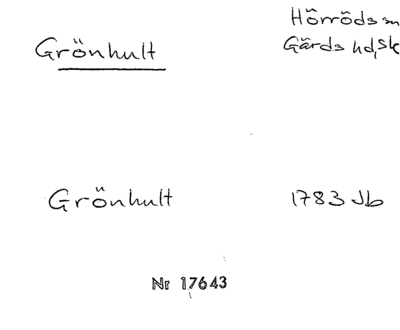 Grönhult
Hörröds sn
Gärds hd, Sk
Grönhult
1783 Jb
Nr 17643